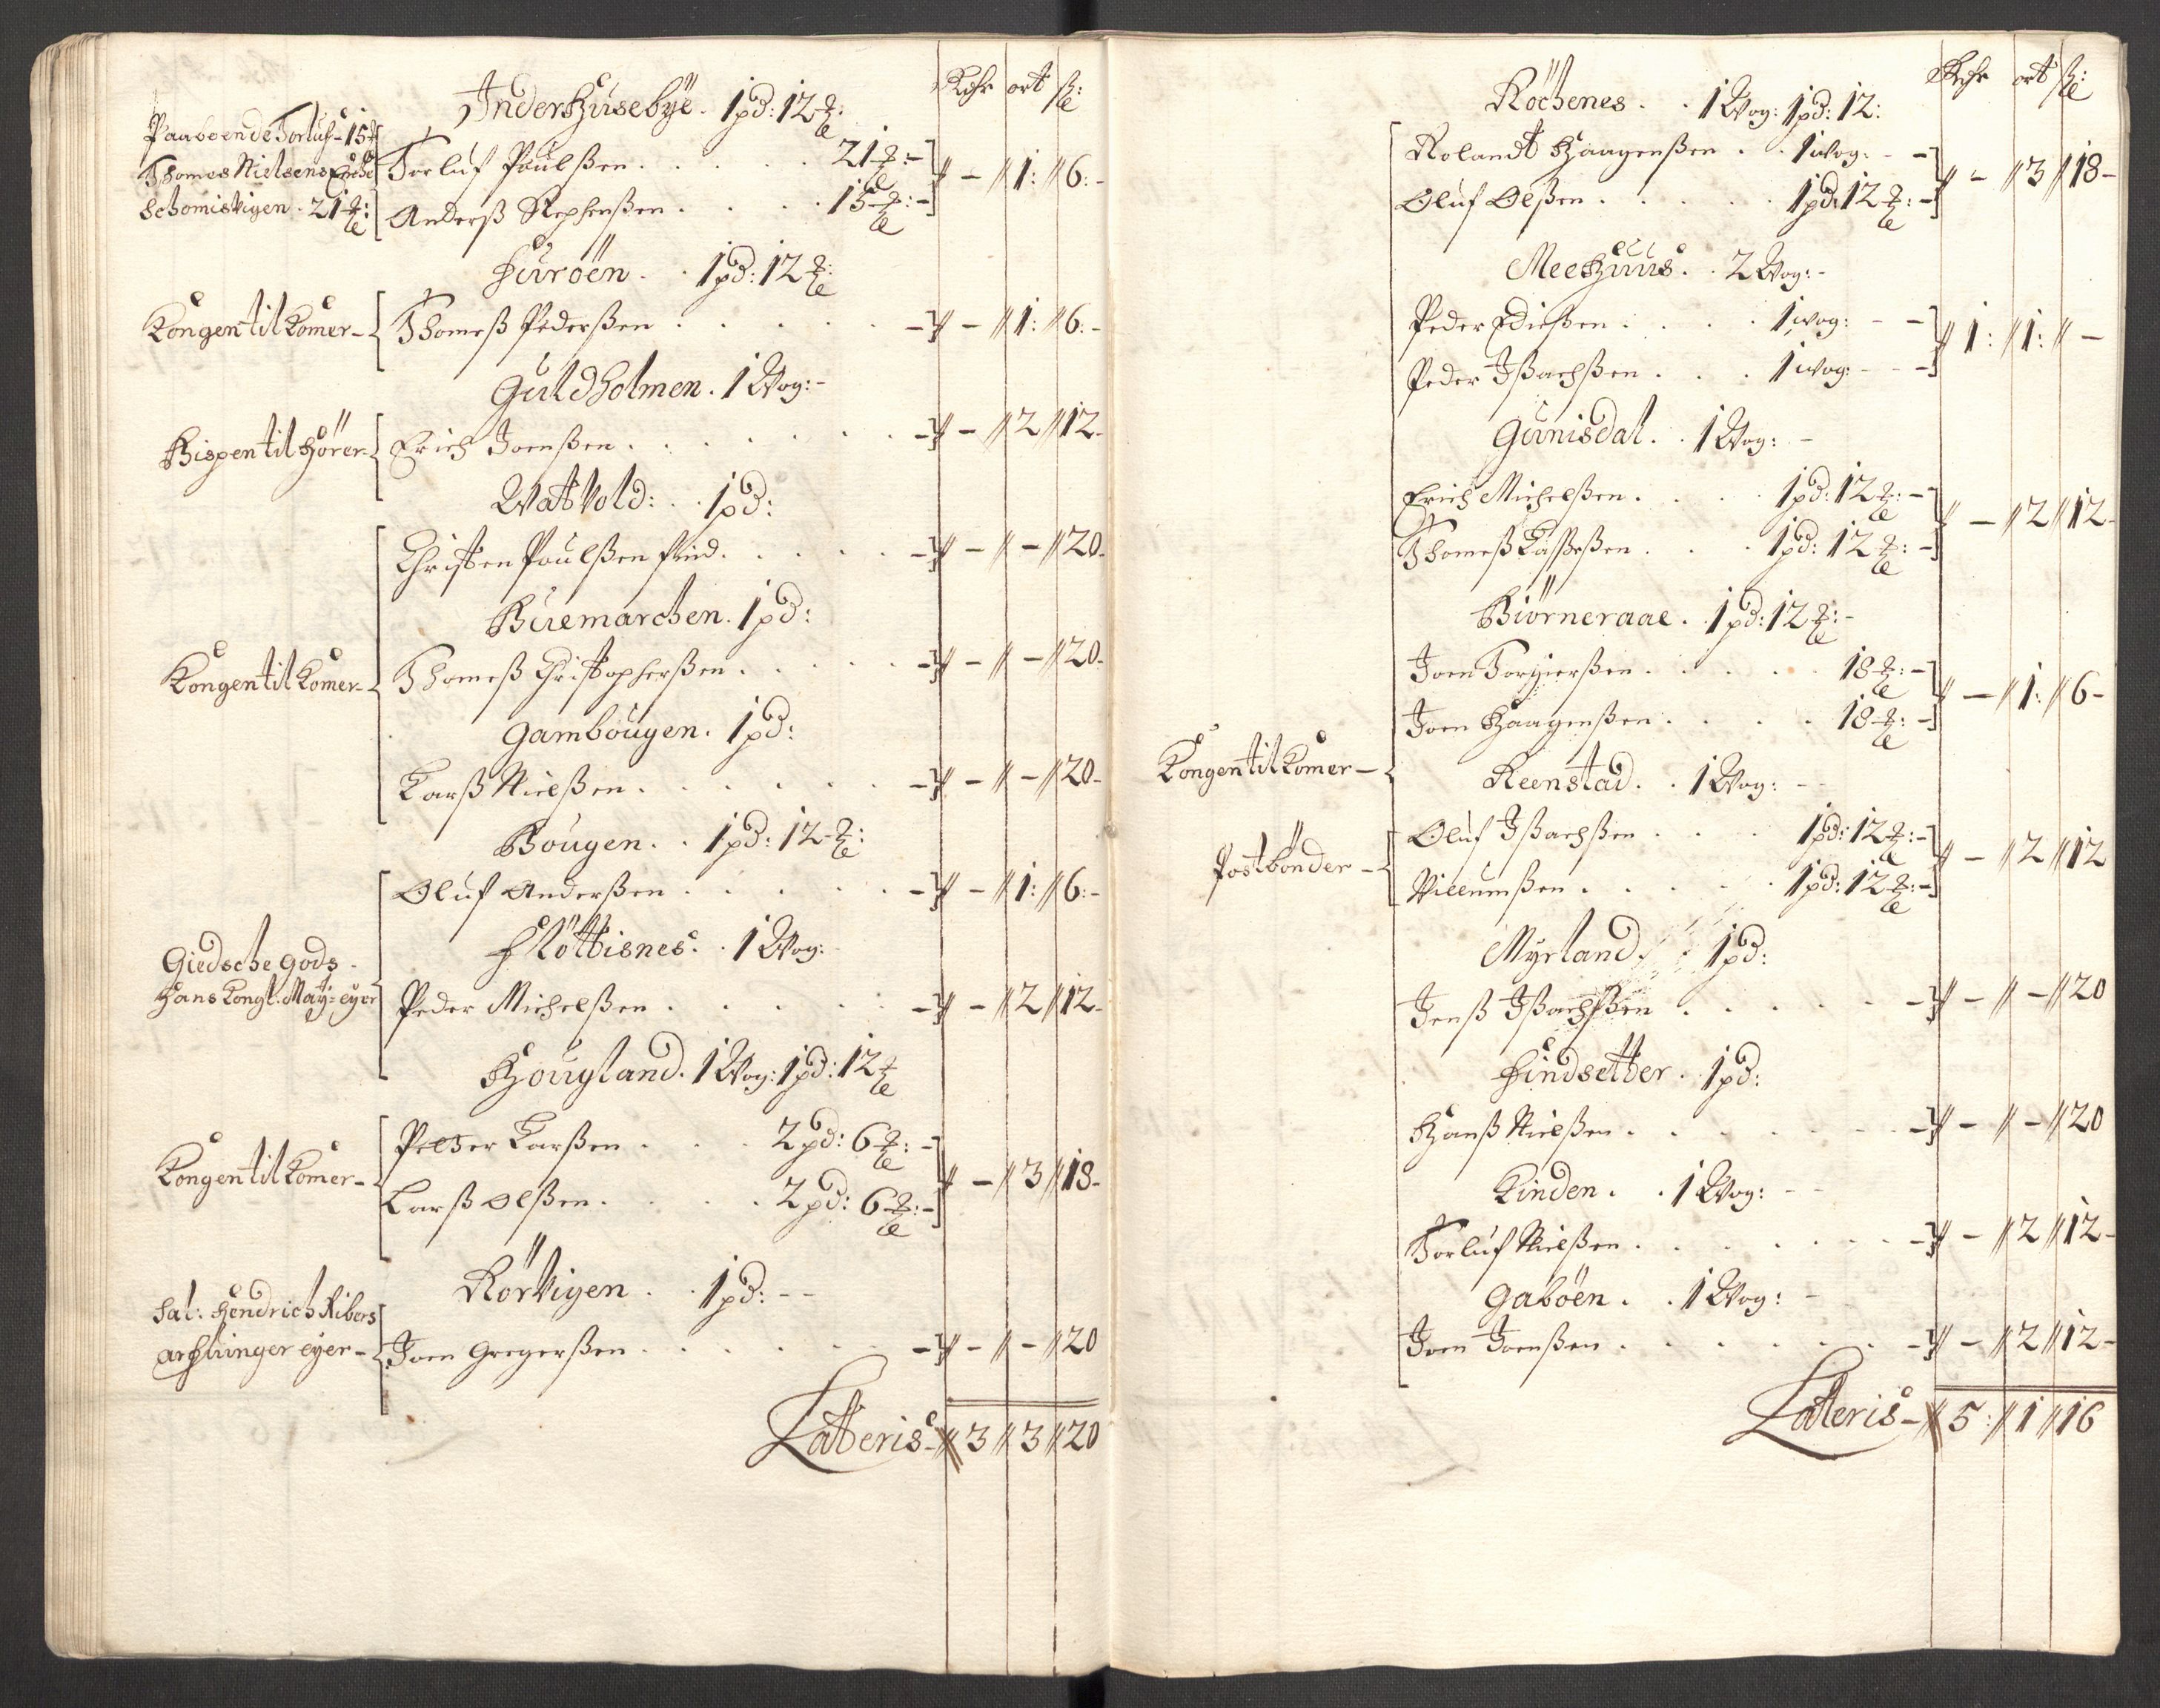 Rdr ort ß:
Inderhusebÿe. 1pd: 12 ℔:
Paaboende Torluf - 15 ℔
Thomes Nielsens Encke
Schomisvigen. 21 ℔:
Torluf Poulßen . . . . . 21 ℔: -
Anderß Stephenßen . . . . 15 ℔: -
- 1: 6: -
Furöen . . 1pd: 12 ℔:
Kongen til Komer -
Thomeß Pederßen . . . . . - 1: 6: -
Guldholmen. 1 Wog: -
Bispen til hörer -
Erich Joenßen . . . . . . - 2 12 -
Watvold: . . 1pd:
Christen Poulßen . . . . - - 20 -
Buemarchen. 1pd:
Kongen til Komer -
Thomeß Christopherßen . . . . . - - 20 -
Gambougen. 1pd:
Larß Nielßen . . . . . - - 20 -
Bougen . . 1pd: 12 ℔:
Oluf Anderßen . . . . . - 1: 6: -
Flöttisnes . . 1 Wog:
Giedsche gods -
hans Kongl. May: eyer
Peder Michelßen . . . . - 2 12 -
Hougland. 1 Wog: 1pd: 12 ℔
Kongen til Komer -
Petter Larßen . . . 2 pd: 6 ℔: -
Larß Olßen . . . . 2 pd: 6 ℔: -
- 3 18 -
Rörvigen . . 1pd: - -
Sal: Hendrich Ribers
arfvinger eyer -
Joen Gregerßen . . . . . - - 20
Latteris - 3 3 20
Rdr ort ß:
Röchenes . . 1 Wog: 1pd: 12:
Rolandt Haagenßen . . 1 wog: - -
Oluf Olßen . . . . . 1pd: 12 ℔: -
- 3 18 -
Meehuus . . 2 Wog: -
Peder Edießen . . . . 1 wog: - -
Peder Ißachßen . . . 1 wog: - -
1: 1: -
Gunisdal . . 1 Wog: -
Erich Michelßen . . . . 1pd: 12 ℔: -
Thomeß Laßeßen . . . 1pd: 12 ℔: -
- 2 12 -
Biörneraae . . 1pd: 12 ℔: -
Joen Torgierßen . . . . . 18 ℔: -
Joen Haagenßen . . . . 18 ℔: -
- 1: 6 -
Kongen til Komer -
Reenstad . . 1 Wog: - -
Postbönder -
Oluf Ißachßen . . . . 1pd: 12 ℔: -
Villumßen . . . . . 1pd: 12 ℔: -
- 2 12
Myrland. 1pd:
Jenß Ißachßen . . . . . - - 20
Findsetter. 1pd:
Hanß Nielßen . . . . . . - - 20
Kinden . . 1 Wog: - -
Torluf Nielßen . . . . . . - 2 12 -
Gaböen . . 1 Wog: -
Joen Joenßen . . . . . . - 2 12 -
Latteris - 5: 1 16